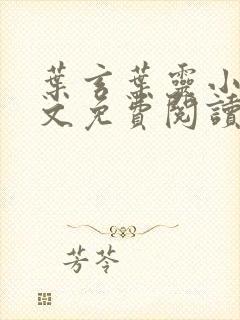 葉言葉靈小
文免費閱讀
芳苓